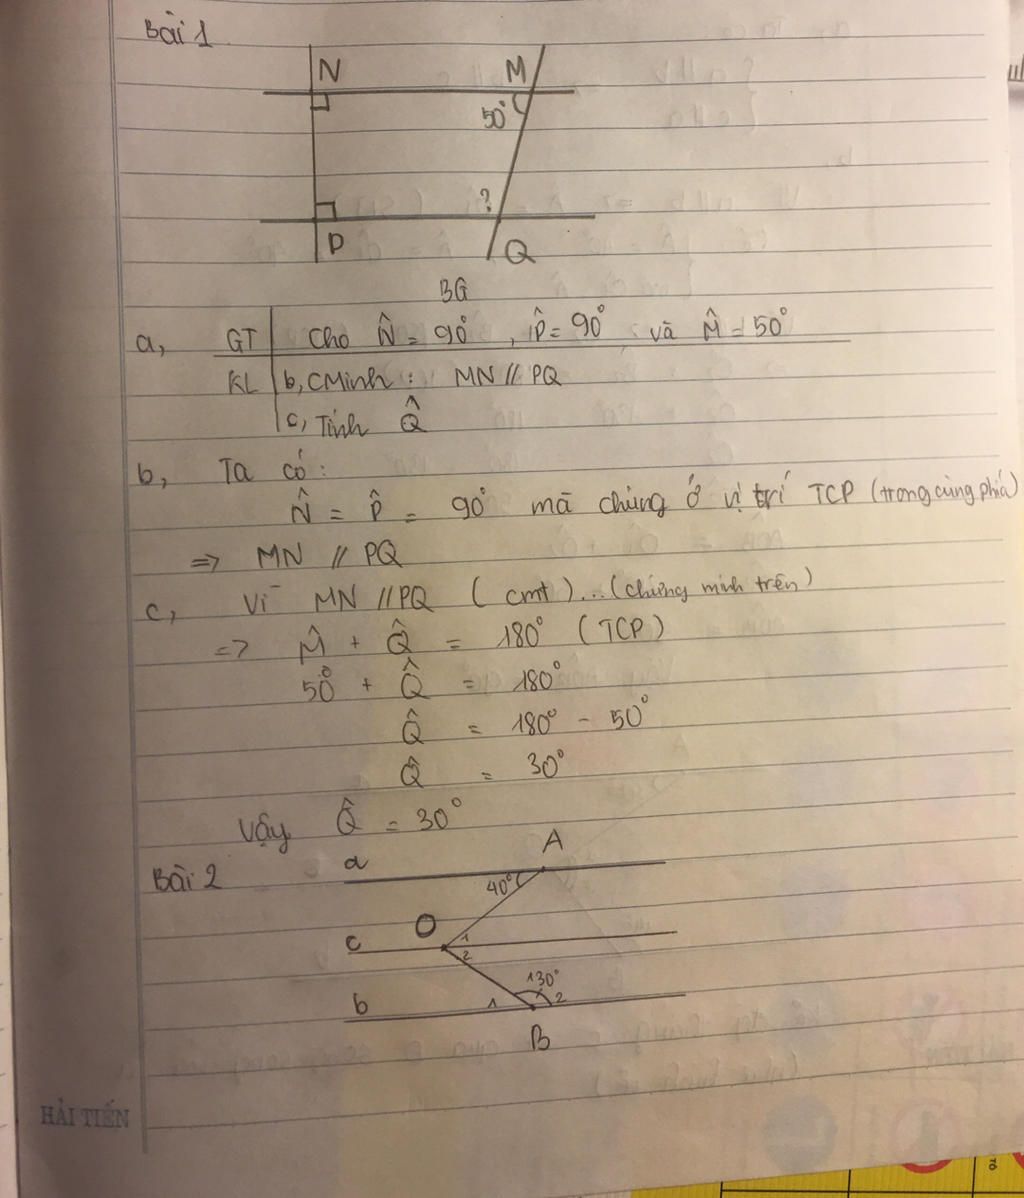 Bài 1
N M
50°
?
P Q
BG
a, GT Cho N̂ = 90°, P̂ = 90° và M̂ = 50°
KL b, CMinh: MN // PQ
c, Tính Q̂
b, Ta có:
N̂ = P̂ = 90° mà chúng ở vị trí TCP (trong cùng phía)
=> MN // PQ
c, Vì MN // PQ (cmt)...(chứng minh trên)
=> M̂ + Q̂ = 180° (TCP)
50° + Q̂ = 180°
Q̂ = 180° - 50°
Q̂ = 30°
Vậy Q̂ = 30°
Bài 2
a A
40°
c O 1
2
130°
b 1 2
B
HẢI TIẾN